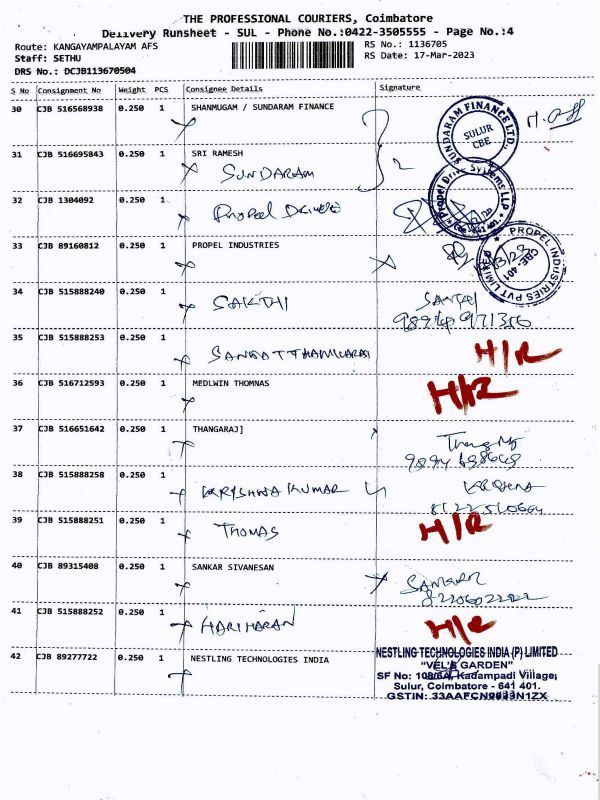 THE PROFESSIONAL COURIERS, Coimbatore
Delivery Runsheet - SUL - Phone No.:0422-3505555 - Page No.:4
Route: KANGAYAMPALAYAM AFS
RS No.: 1136705
Staff: SETHU
RS Date: 17-Mar-2023
DRS No.: DCJB113670504
S No Consignment No Weight PCS Consignee Details Signature
30 CJB 516568938 0.250 1 SHANMUGAM / SUNDARAM FINANCE
SUNDARAM FINANCE LTD.
SULUR
CBE
31 CJB 516695843 0.250 1 SRI RAMESH
SUNDARAM 2
Propel Drive Systems LLP
32 CJB 1304092 0.250 1
PROPEL
33 CJB 89160812 0.250 1 PROPEL INDUSTRIES
PROPEL INDUSTRIES PVT LIMITED
CBE-401
34 CJB 515888240 0.250 1
SAKTHI
35 CJB 515888253 0.250 1
H/R
36 CJB 516712593 0.250 1 MEDLWIN THOMNAS
H/R
37 CJB 516651642 0.250 1 THANGARAJ]
38 CJB 515888258 0.250 1
KRISHNA KUMAR
39 CJB 515888251 0.250 1
THOMAS H/R
40 CJB 89315408 0.250 1 SANKAR SIVANESAN
41 CJB 515888252 0.250 1
HARIHARAN H/R
42 CJB 89277722 0.250 1 NESTLING TECHNOLOGIES INDIA
NESTLING TECHNOLOGIES INDIA (P) LIMITED
"VEL'S GARDEN"
SF No: 108/6A, Kadampadi Village,
Sulur, Coimbatore - 641 401.
GSTIN: 33AAFCN9623N1ZX